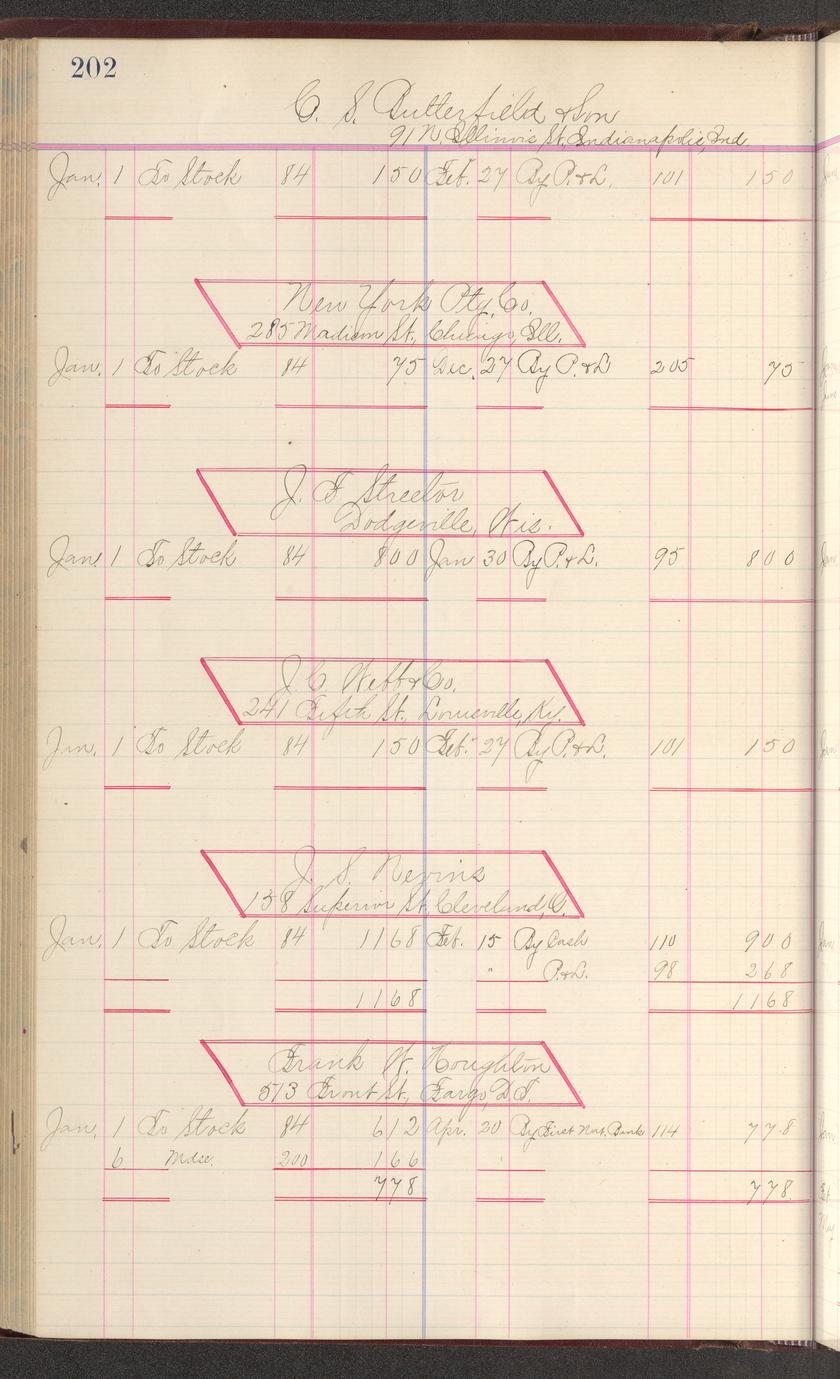 202
C. S. Butterfield & Son
91 N. Illinois St. Indianapolis, Ind.
Jan. 1 To Stock 84 150 Feb. 27 By P. & L. 101 150
New York Pty. Co.
285 Madison St., Chicago, Ill.
Jan. 1 To Stock 84 75 Dec. 27 By P. & L 205 75
J. F Streetor
Dodgeville, Wis.
Jan. 1 To Stock 84 800 Jan 30 By P. & L. 95 800
J. C. Webb & Co.
241 Fifth St., Louisville, Ky.
Jan. 1 To Stock 84 150 Feb. 27 By P. & L. 101 150
J. S. Nevins
158 Superior St., Cleveland, O.
Jan. 1 To Stock 84 1168 Feb. 15 By Cash 110 900
" P. & L. 98 268
1168 1168
Frank W. Houghton
513 Front St., Fargo, D.T.
Jan. 1 To Stock 84 612 Apr. 20 By First Nat. Bank 114 778
6 Mdse. 200 166
778 778